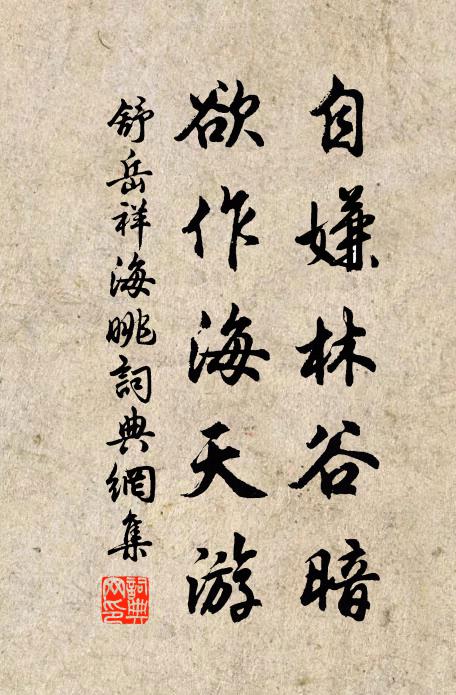 自嫌林谷暗
欲作海天游
舒岳祥海眺詞典網集
詞典网印